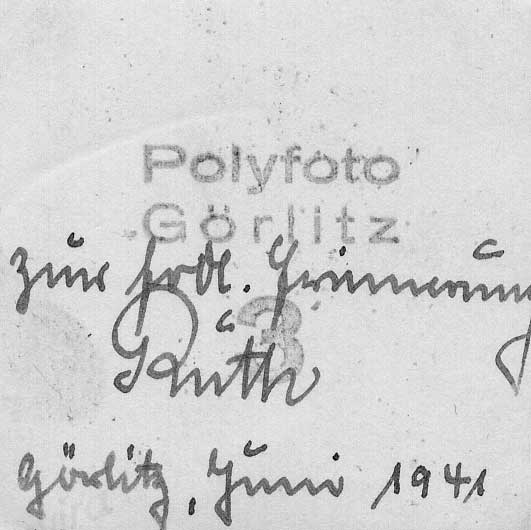 Polyfoto
Görlitz
zur frdl. Erinnerung
3
Ruth
Görlitz, Juni 1941